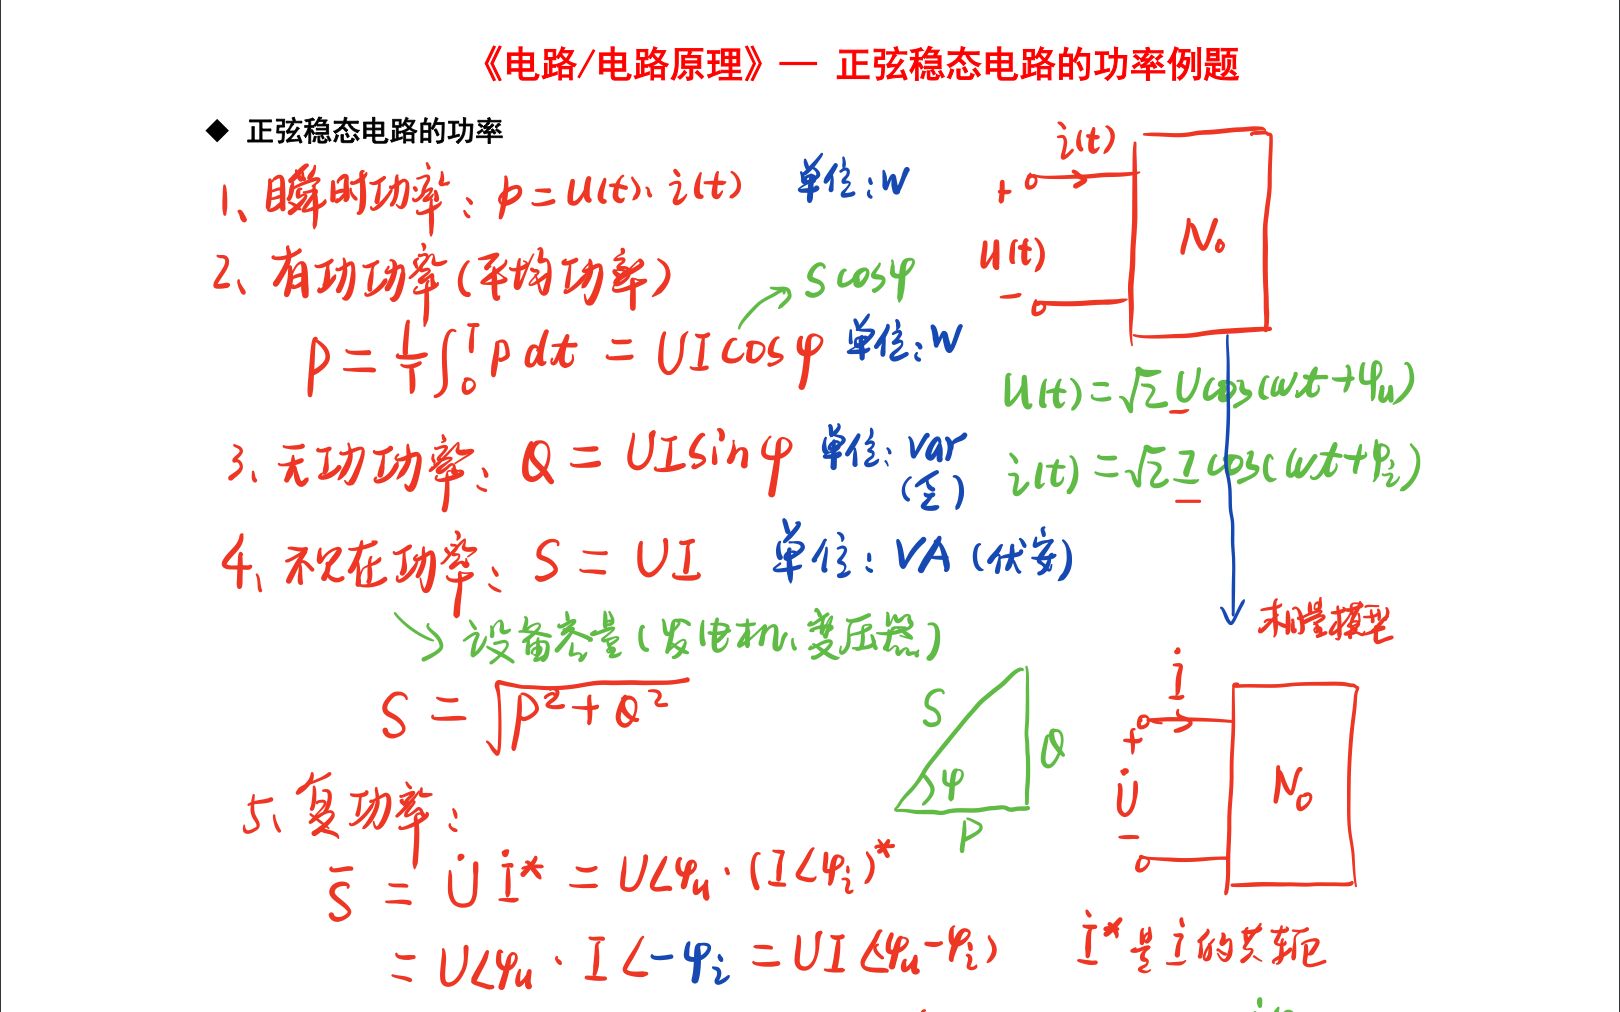 《电路/电路原理》— 正弦稳态电路的功率例题
◆ 正弦稳态电路的功率
1、瞬时功率：p = u(t)·i(t) 单位：W
2、有功功率(平均功率)
S cosφ
P = 1/T ∫₀ᵀ p dt = UI cosφ 单位：W
3、无功功率：Q = UI sinφ 单位：var
(乏)
4、视在功率：S = UI 单位：VA (伏安)
设备容量(发电机、变压器)
S = √(P²+Q²)
S
φ
Q
P
5、复功率：
S̄ = U̇ İ* = U∠φu · (I∠φi)*
= U∠φu · I∠-φi = UI∠(φu-φi)
i(t)
+
u(t)
−
N₀
u(t) = √2 U cos(ωt+φu)
i(t) = √2 I cos(ωt+φi)
相量模型
İ
+
U̇
−
N₀
İ* 是 İ 的共轭